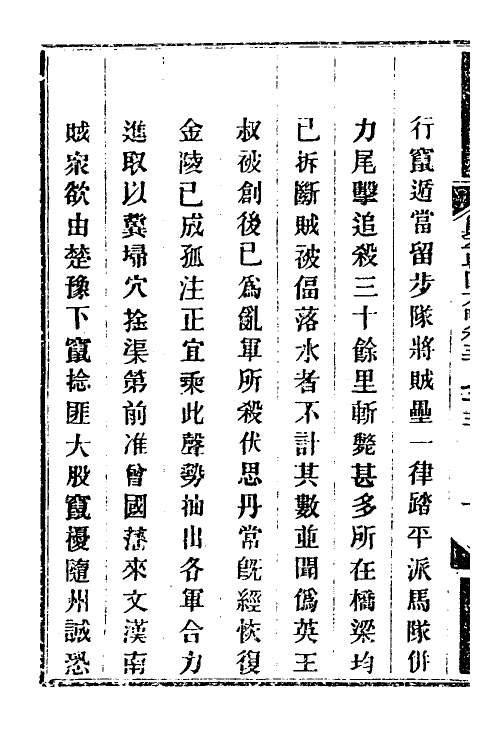 行竄遁當留步隊將賊壘一律踏平派馬隊併
力尾擊追殺三十餘里斬斃甚多所在橋梁均
已拆斷賊被偪落水者不計其數並聞僞英王
叔被創後已爲亂軍所殺伏思丹常旣經恢復
金陵已成孤注正宜乘此聲勢抽出各軍合力
進取以冀埽穴擒渠第前准曾國藩來文漢南
賊衆欲由楚豫下竄捻匪大股竄擾隨州誠恐